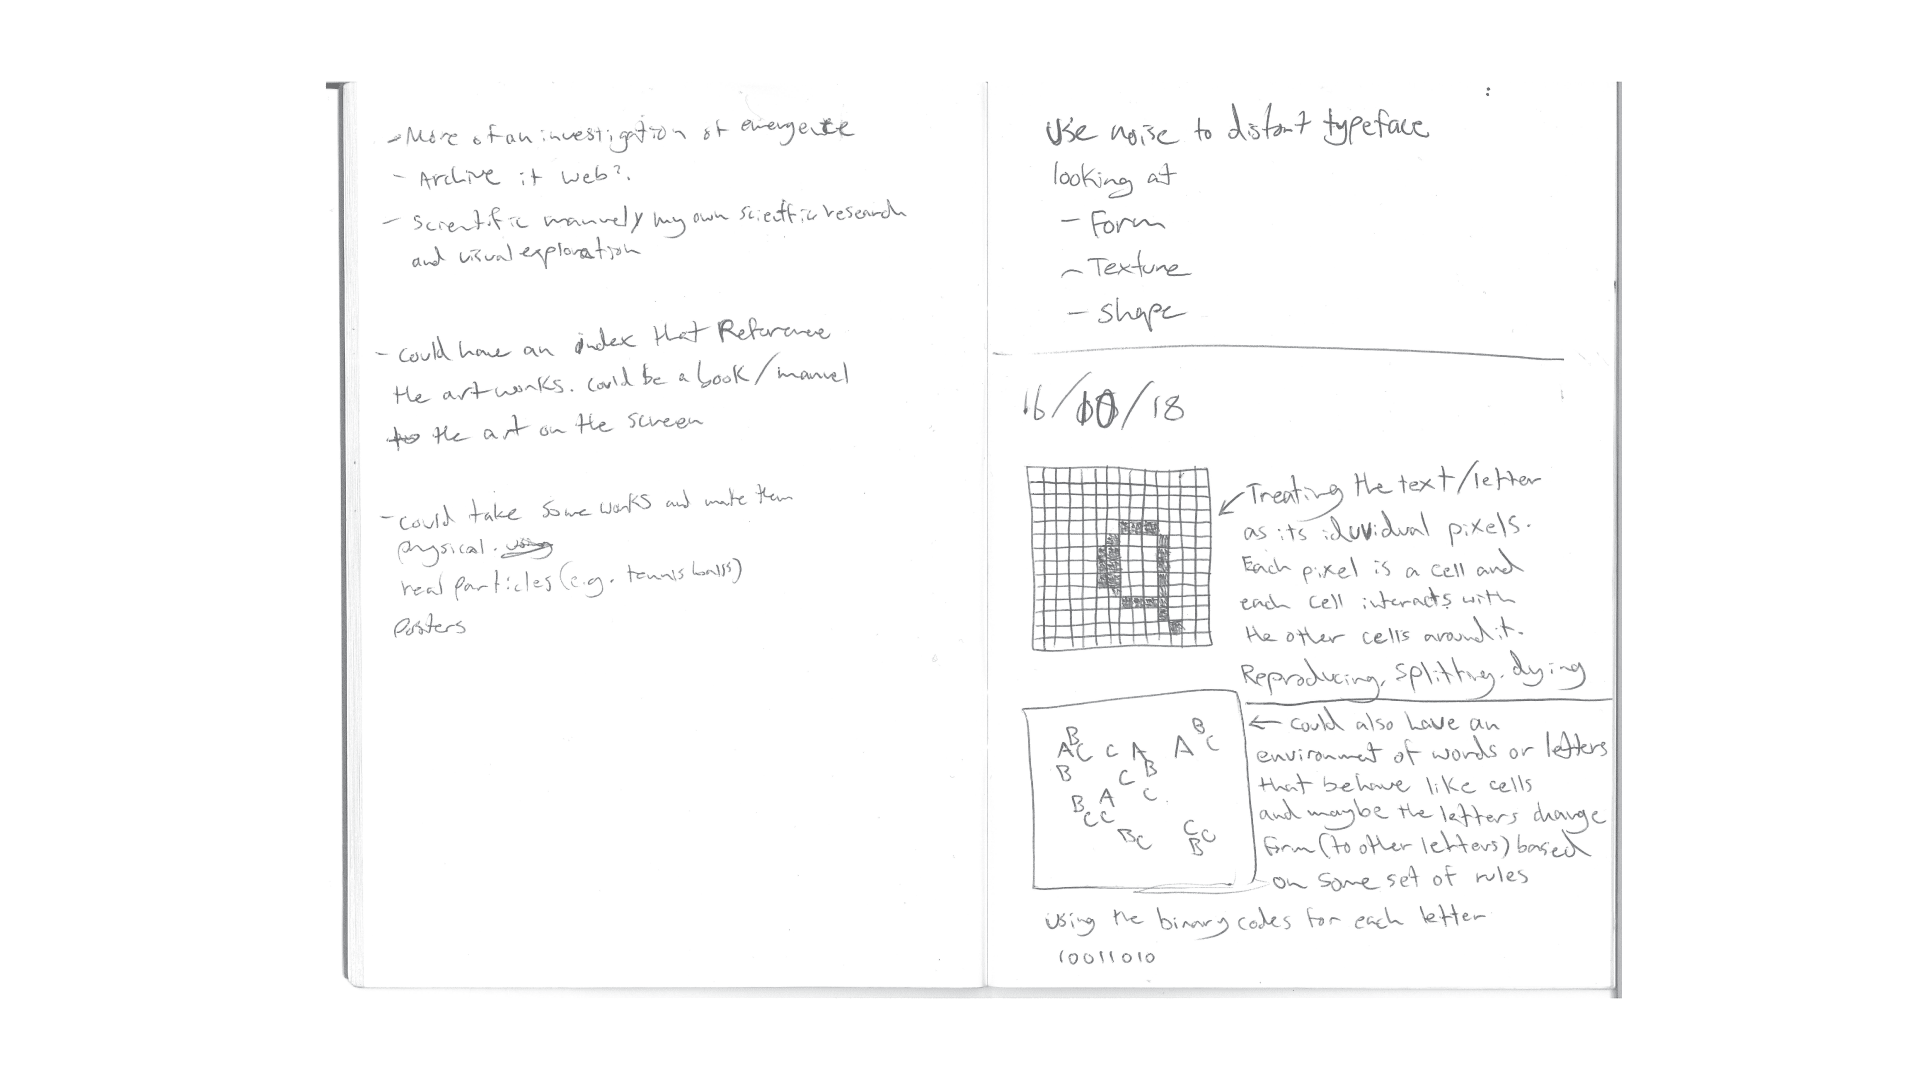 - More of an investigation of emergence
- Archive it web?
- Scientific manuely my own scientfic research
and visual exploration
- could have an index that Reference
the artworks. could be a book/manuel
to the art on the screen
- could take some works and make them
physical. using
real particles (e.g. tennis balls)
posters
Use noise to distort typeface
looking at
- Form
- Texture
- Shape
16/10/18
Treating the text/letter
as its iduvidual pixels.
Each pixel is a cell and
each cell interacts with
the other cells around it.
Reproducing, splitting, dying
B
A C C A A B C
B C B
B A C
C C
B C C C
B
← could also have an
environment of words or letters
that behave like cells
and maybe the letters change
form (to other letters) based
on some set of rules
using the binary codes for each letter
10011010